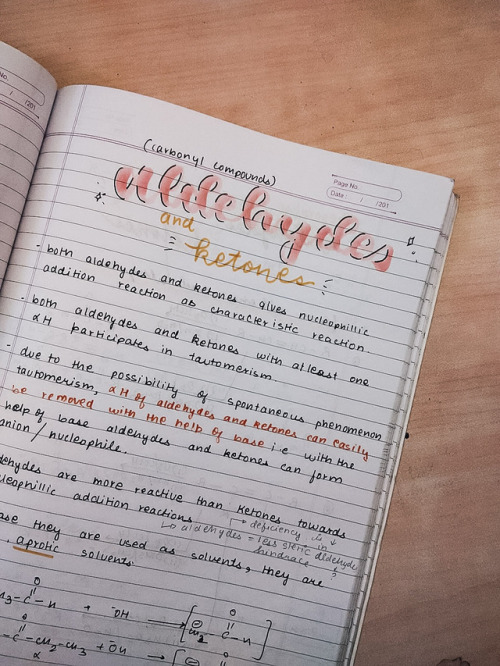 No.
/ /201
Page No.
Date: / /201
(carbonyl compounds)
aldehydes
and
ketones
- both aldehydes and ketones gives nucleophillic
addition reaction as characteristic reaction.
- both aldehydes and ketones with atleast one
αH participates in tautomerism.
- due to the possibility of spontaneous phenomenon
tautomerism, αH of aldehydes and ketones can easily
be removed with the help of base i.e with the
help of base aldehydes and ketones can form
anion/nucleophile.
dehydes are more reactive than ketones towards
leophillic addition reactions
deficiency is ↓
aldehydes = less steric in didehyde
hindrace
ase they are used as solvents, they are
aprotic solvents.
O
H3-C-H + ⁻OH → [⊖CH2 C-H]
O
O
C-CH2-CH3 + ⁻OH → [⊖
α